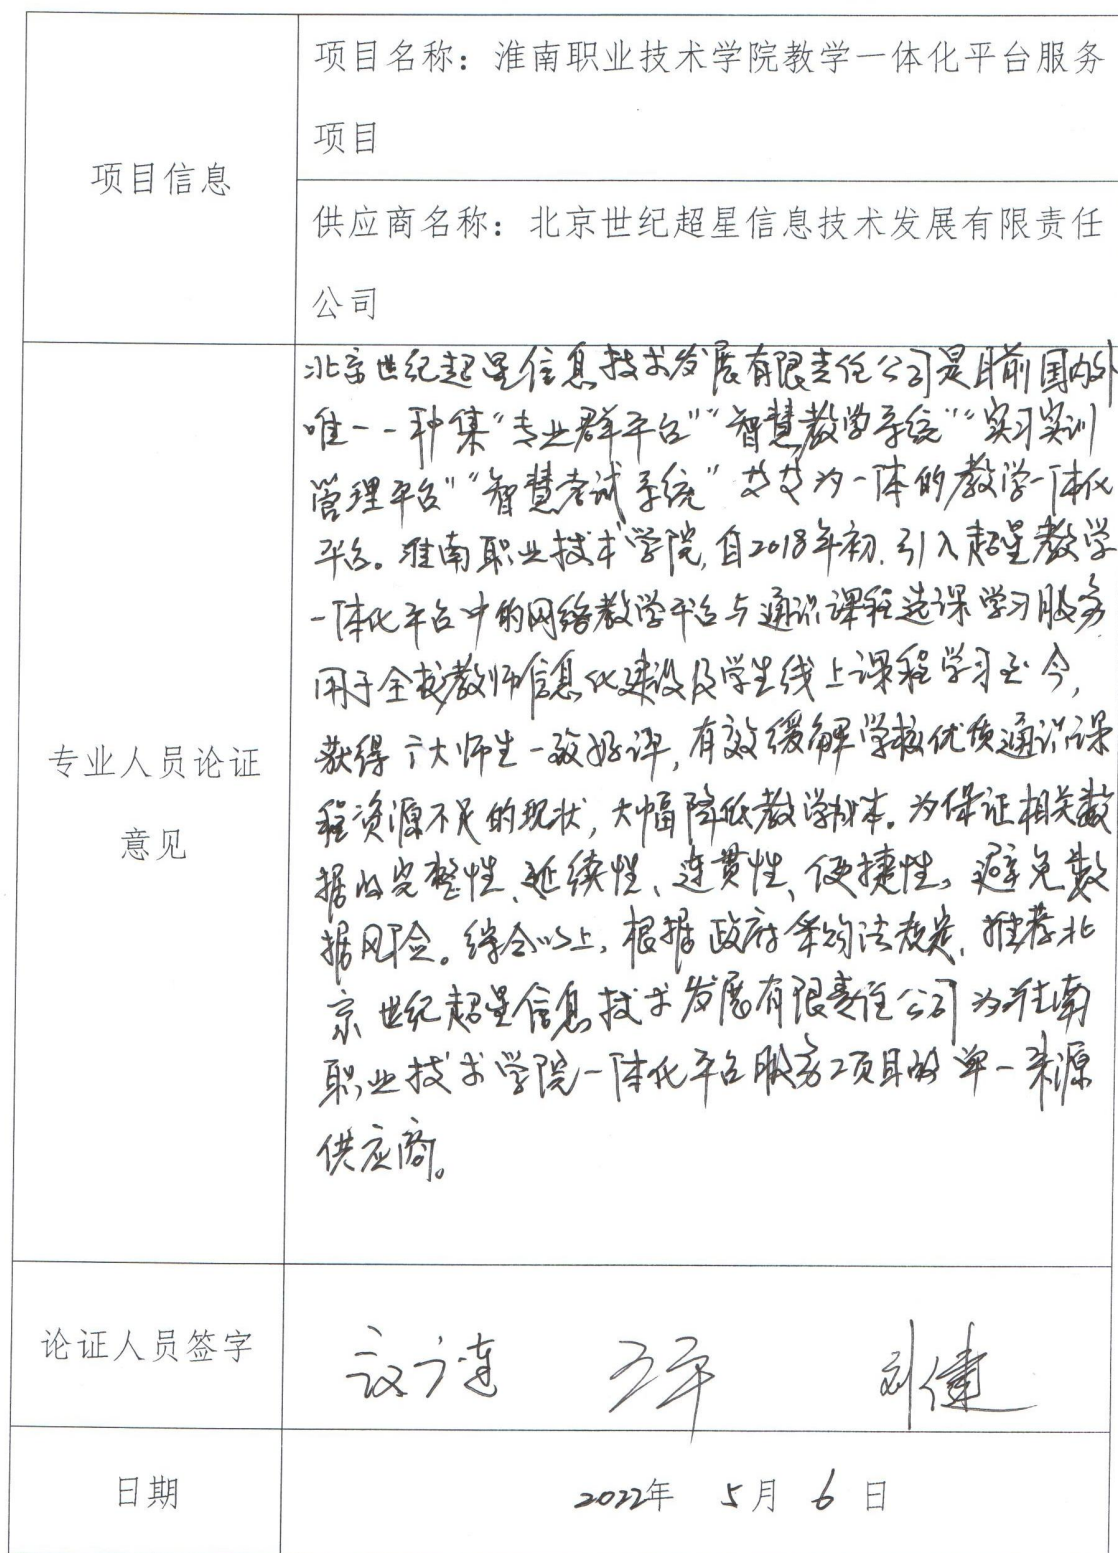 项目信息
项目名称：淮南职业技术学院教学一体化平台服务
项目
供应商名称：北京世纪超星信息技术发展有限责任
公司
专业人员论证
意见
北京世纪超星信息技术发展有限责任公司是目前国内外
唯一一种集“专业群平台”“智慧教学系统”“实习实训
管理平台”“智慧考试系统”为一体的教学一体化
平台。淮南职业技术学院,自2018年初,引入超星教学
一体化平台中的网络教学平台与通识课程选课学习服务
用于全校教师信息化建设及学生线上课程学习至今,
获得广大师生一致好评,有效缓解学校优质通识课
程资源不足的现状,大幅降低教学成本。为保证相关数
据的完整性、延续性、连贯性、便捷性,避免数
据风险。综合以上,根据政府采购法规定,推荐北
京世纪超星信息技术发展有限责任公司为淮南
职业技术学院一体化平台服务项目的单一来源
供应商。
论证人员签字
刘健
日期
2022年 5月 6日